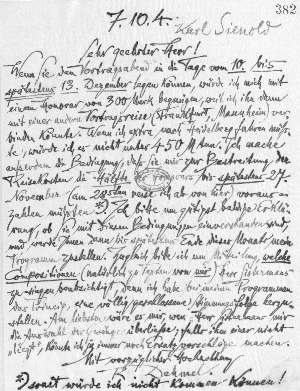 382
7.10.4.
Karl Sienold
Sehr geehrter Herr!
Wenn Sie den Vortragsabend in die Tage vom 10. bis
spätestens 13. Dezember legen können, würde ich mich mit
einem Honorar von 300 Mark begnügen, weil ich ihn dann
mit einer andern Vortragsreise (Frankfurt, Mannheim) ver-
binden könnte. Wenn ich extra nach Heidelberg fahren müß-
te, würde ich es nicht unter 450 M tun. Ich mache
außerdem die Bedingung, daß Sie mir zur Bestreitung der
Reisekosten die Hälfte des Honorars bis spätestens 27.
November (am 29sten reise ich ab von hier) voraus-
zahlen müßten *). Ich bitte um gütigst baldige Erklä-
rung, ob Sie mit diesen Bedingungen einverstanden sind,
und werde Ihnen dann bis spätestens Ende dieses Monats mein
Programm zustellen. Zugleich bitte ich um Mitteilung, welche
Compositionen (natürlich zu Texten von mir) Herr
zu singen beabsichtigt, denn ich habe bei meinen Programmen
das Princip, eine völlig geschlossene Stimmungsfolge herzu-
stellen. Am liebsten wäre es mir, wenn Herr mir
die Auswahl der Gesänge überließe; falls ihm einer nicht
"liegt", könnte ich ja immer noch Ersatzvorschläge machen.
Mit vorzüglicher Hochachtung
R. Dehmel.
*) sonst würde ich nicht kommen können!